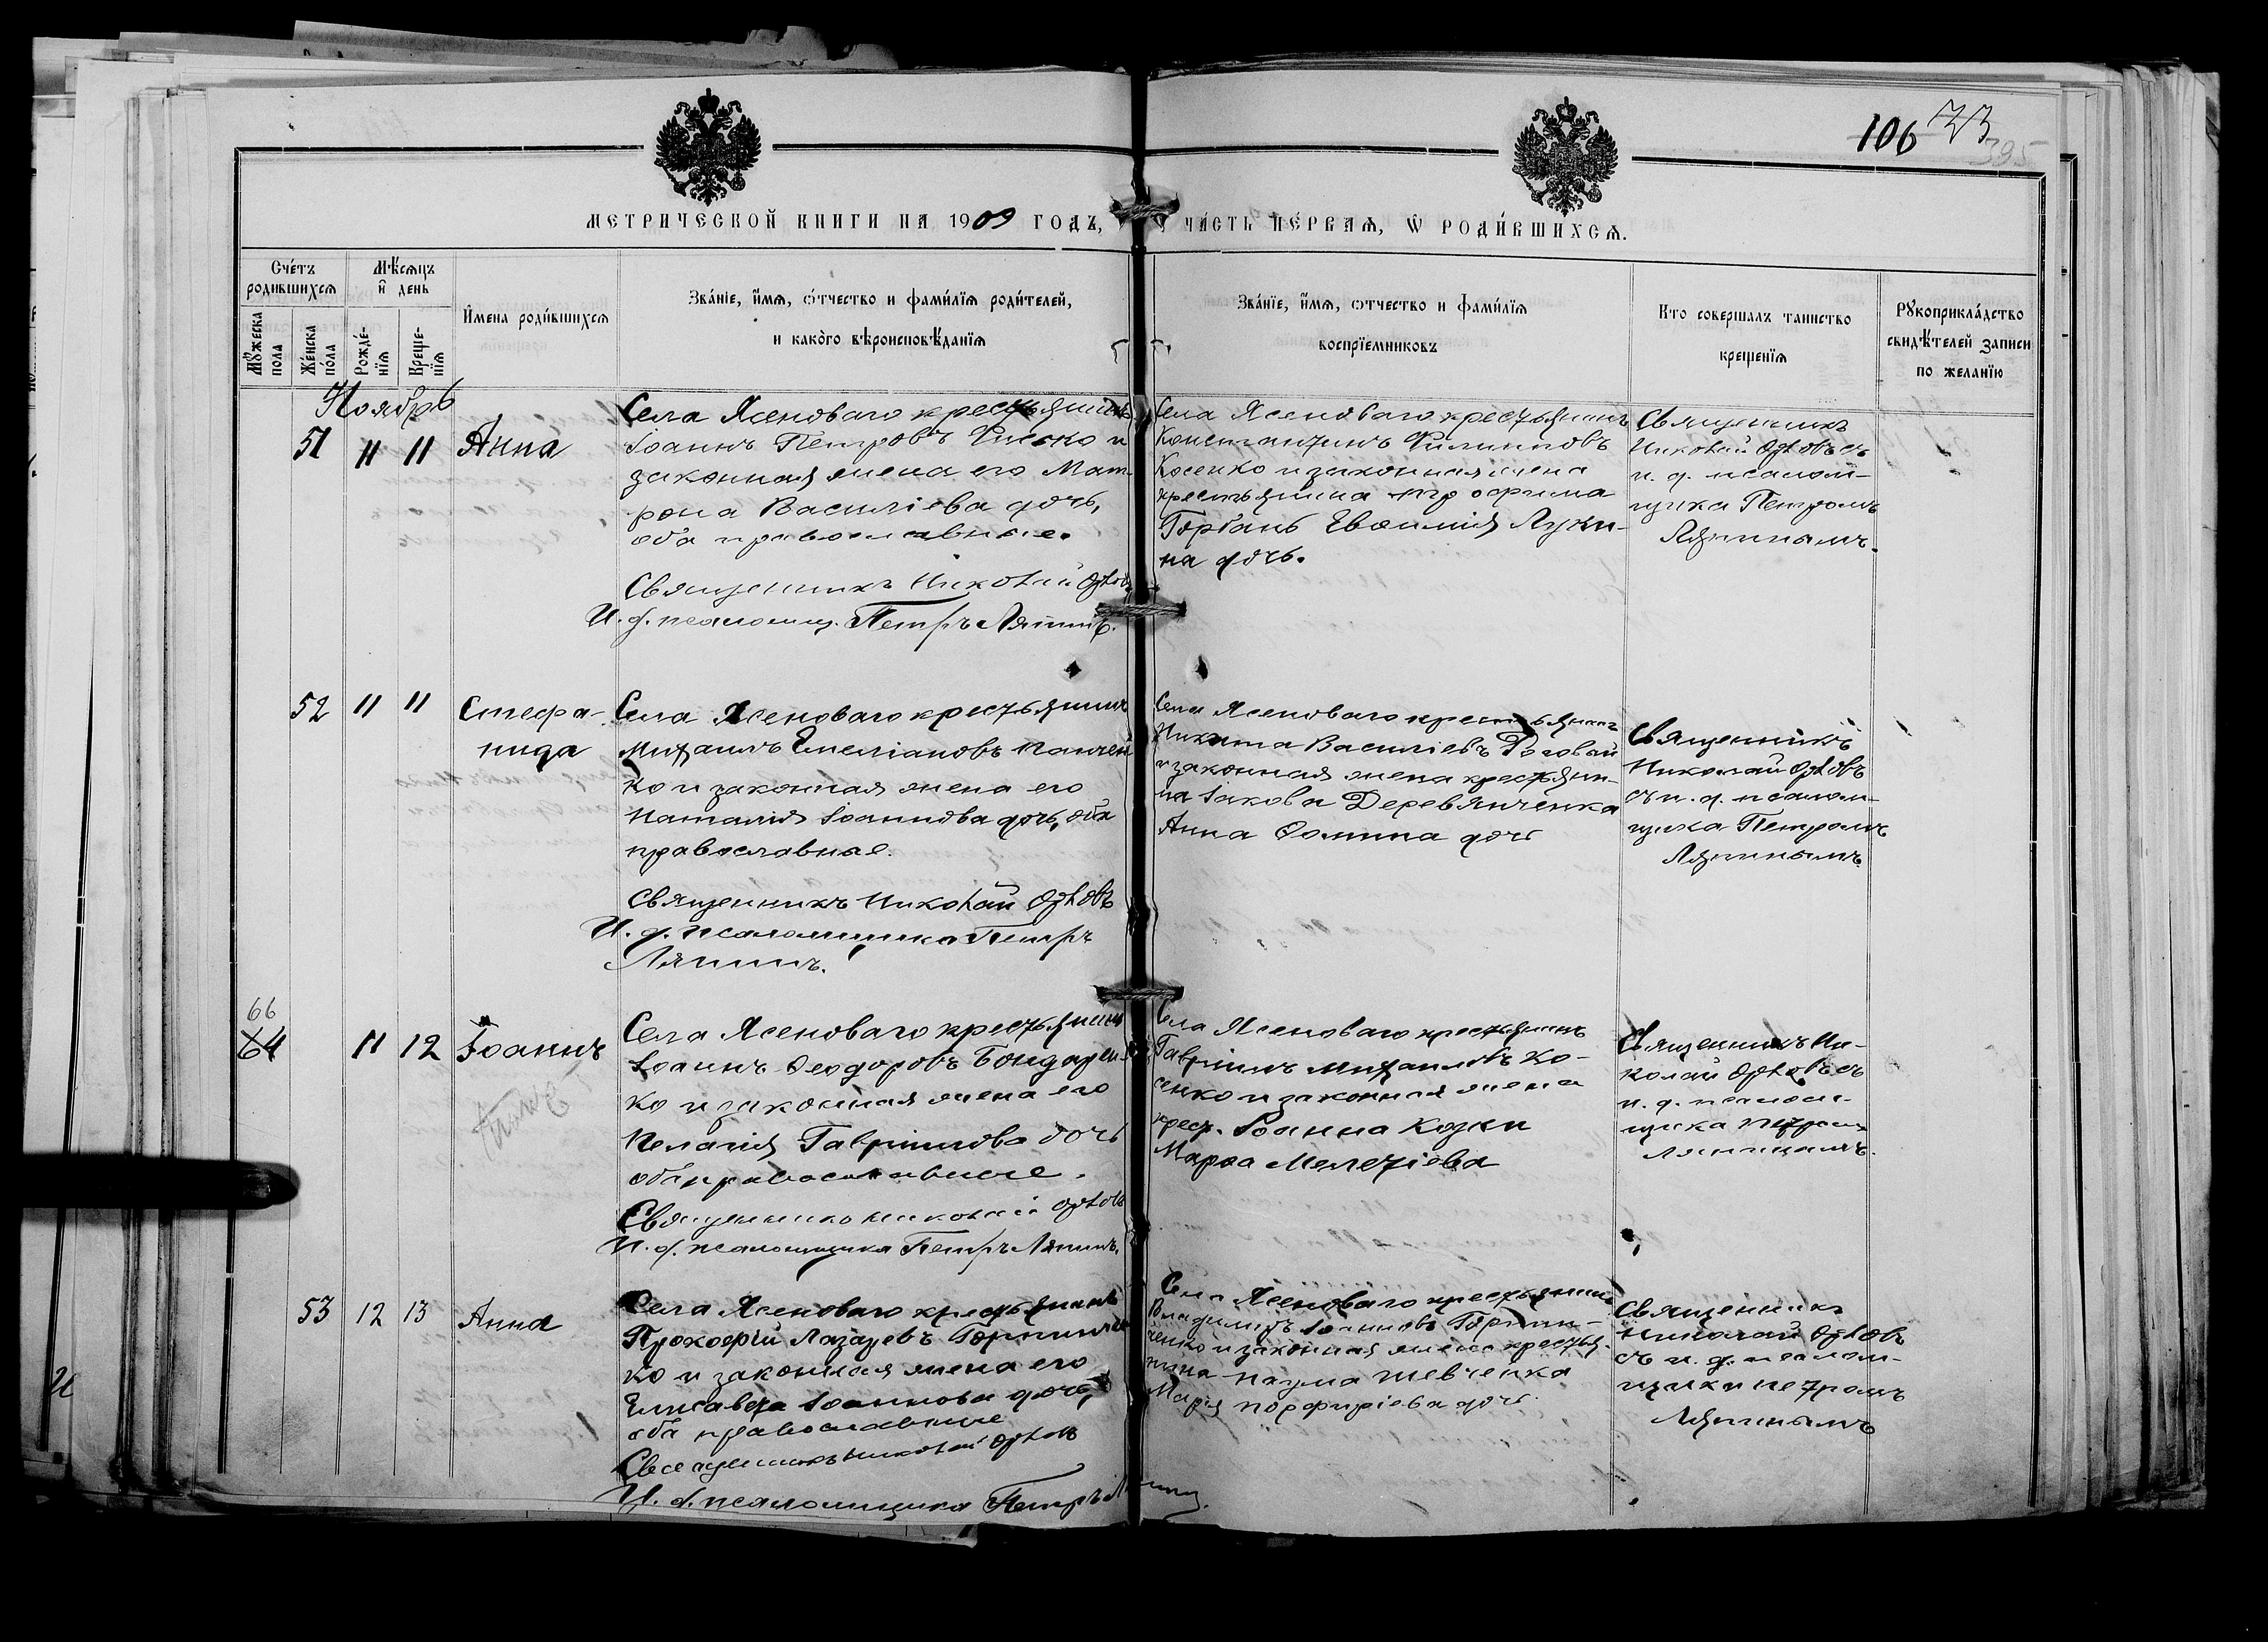 106 73
395
МЕТРИЧЕСКОЙ КНИГИ НА 1909 ГОДЪ, ЧА́СТЬ ПЕ́РВАѦ, Ѡ РОДИ́ВШИХСѦ.
Сче́тъ родившихсѧ
Мѣ́сѧцъ и҆ день
И҆мена роди́вшихсѧ
Зва́нїе, и҆́мѧ, ѻ҆́тчество и фами́лїѧ роди́телей, и како́го вѣроисповѣ́данїѧ
Зва́нїе, и҆́мѧ, ѻтчество и фами́лїѧ воспрїемниковъ
Кто соверша́лъ таинство крещенїѧ
Рꙋкоприкла́дство свидѣ́телей записи по жела́нїю
Мꙋжеска пола
Же́нска по́ла
Рожде́-нїѧ
Креще-нїѧ
Ноябрь
51 11 11 Анна
Села Ясеноваго крестьянинъ
Іоаннъ Петровъ и
законная жена его Мат-
рона Василіева дочь,
оба православные.
Священникъ Николай Орловъ
И. д. псаломщ. Петръ Ляпинъ.
Села Ясеноваго крестьянинъ
Константинъ Филипповъ
Косенко и законная жена
крестьянина Трофима
Горбань Евѳимія Луки-
на дочь.
Священникъ
Николай Орловъ съ
и. д. псалом-
щика Петромъ
Ляпинымъ.
52 11 11 Стефа-
нида
Села Ясеноваго крестьянинъ
Михаилъ Емеліановъ Панчен
ко и законная жена его
Наталія Іоаннова дочь, оба
православные.
Священникъ Николай Орловъ
И. д. псаломщика Петръ
Ляпинъ.
Села Ясеноваго крестьянинъ
Никита Василіевъ Роговой
и законная жена крестьяни-
на Іакова Деревянченка
Анна Ѳомина дочь
Священникъ
Николай Орловъ
съ и. д. псалом-
щика Петромъ
Ляпинымъ
66
64 11 12 Іоаннъ
Села Ясеноваго крестьянинъ
Іоаннъ Ѳеодоровъ Бондарен-
ко и законная жена его
Пелагія Гавріилова дочь
оба православные.
Священникъ Николай Орловъ
И. д. псаломщика Петръ Ляпинъ.
Села Ясеноваго крестьянинъ
Гавріилъ Михаиловъ Ко-
сенко и законная жена
крест. Іоанна Козки
Марѳа Мелетіева
Священникъ Ни-
колай Орловъ съ
и. д. псалом-
щика Петромъ
Ляпинымъ.
53 12 13 Анна
Села Ясеноваго крестьянинъ
Прокофій Лазаревъ
ко и законная жена его
Елисавета Іоаннова дочь,
оба православные
Священникъ Николай Орловъ
И. д. псаломщика Петръ Ляпинъ.
Села Ясеноваго крестьянинъ
Владиміръ Іоанновъ
ченко и законная жена крестья-
нина Наума Шевченка
Марія Порфиріева дочь.
Священникъ
Николай Орловъ
съ и. д. псалом-
щика Петромъ
Ляпинымъ